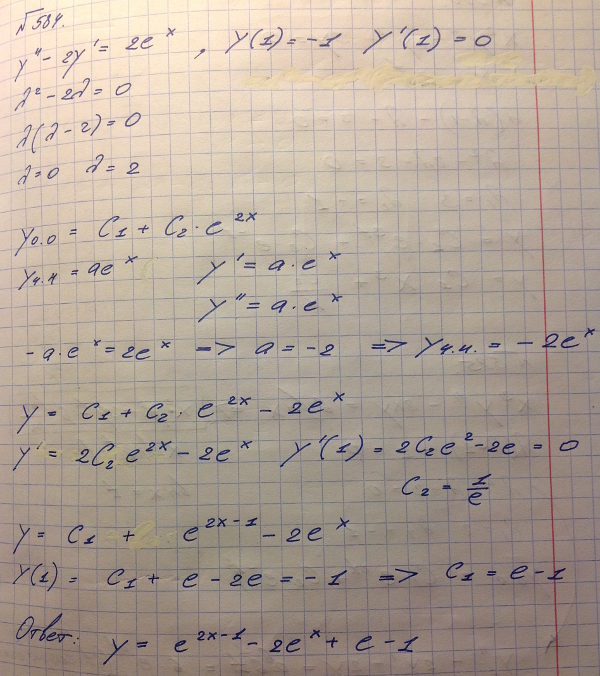 №584.
y'' - 2y' = 2e^x , y(1) = -1 y'(1) = 0
λ² - 2λ = 0
λ(λ - 2) = 0
λ = 0 λ = 2
y₀.₀ = C₁ + C₂ · e^{2x}
y_{ч.н} = ae^x y' = a · e^x
y'' = a · e^x
-a · e^x = 2e^x => a = -2 => y_{ч.н.} = -2e^x
y = C₁ + C₂ · e^{2x} - 2e^x
y' = 2C₂ e^{2x} - 2e^x y'(1) = 2C₂e² - 2e = 0
C₂ = 1/e
y = C₁ + e^{2x-1} - 2e^x
y(1) = C₁ + e - 2e = -1 => C₁ = e - 1
Ответ: y = e^{2x-1} - 2e^x + e - 1